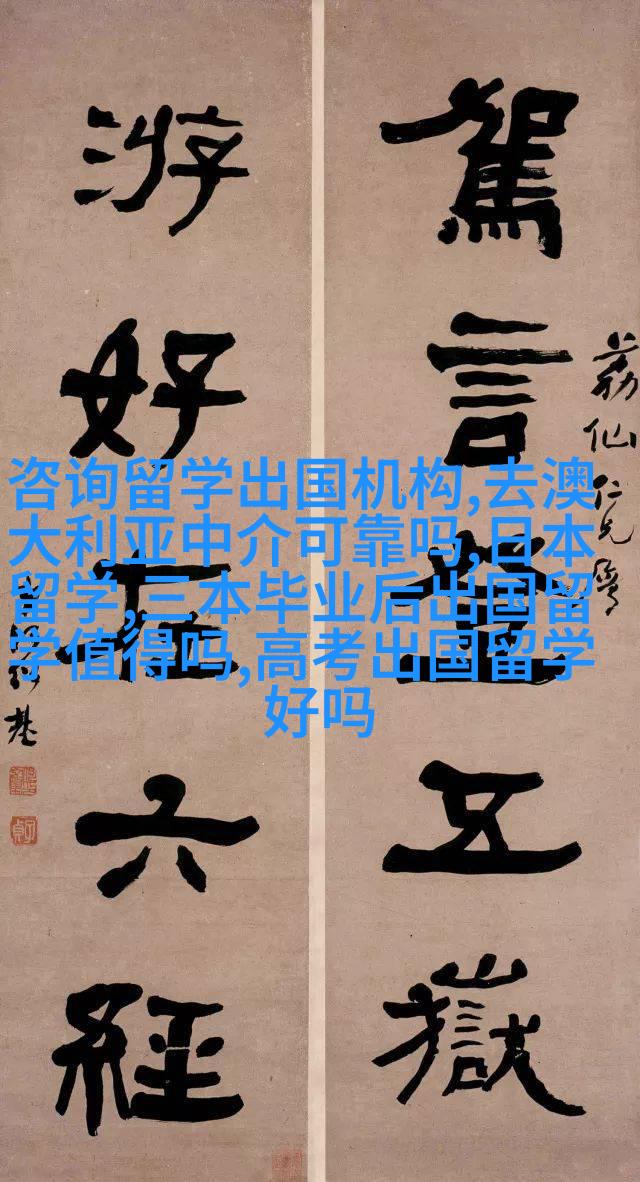 駕言登五嶽
荔仙仁兄屬
游好在六經
基
咨询留学出国机构,去澳
大利亚中介可靠吗,日本
留学,三本毕业后出国留
学值得吗,高考出国留学
好吗